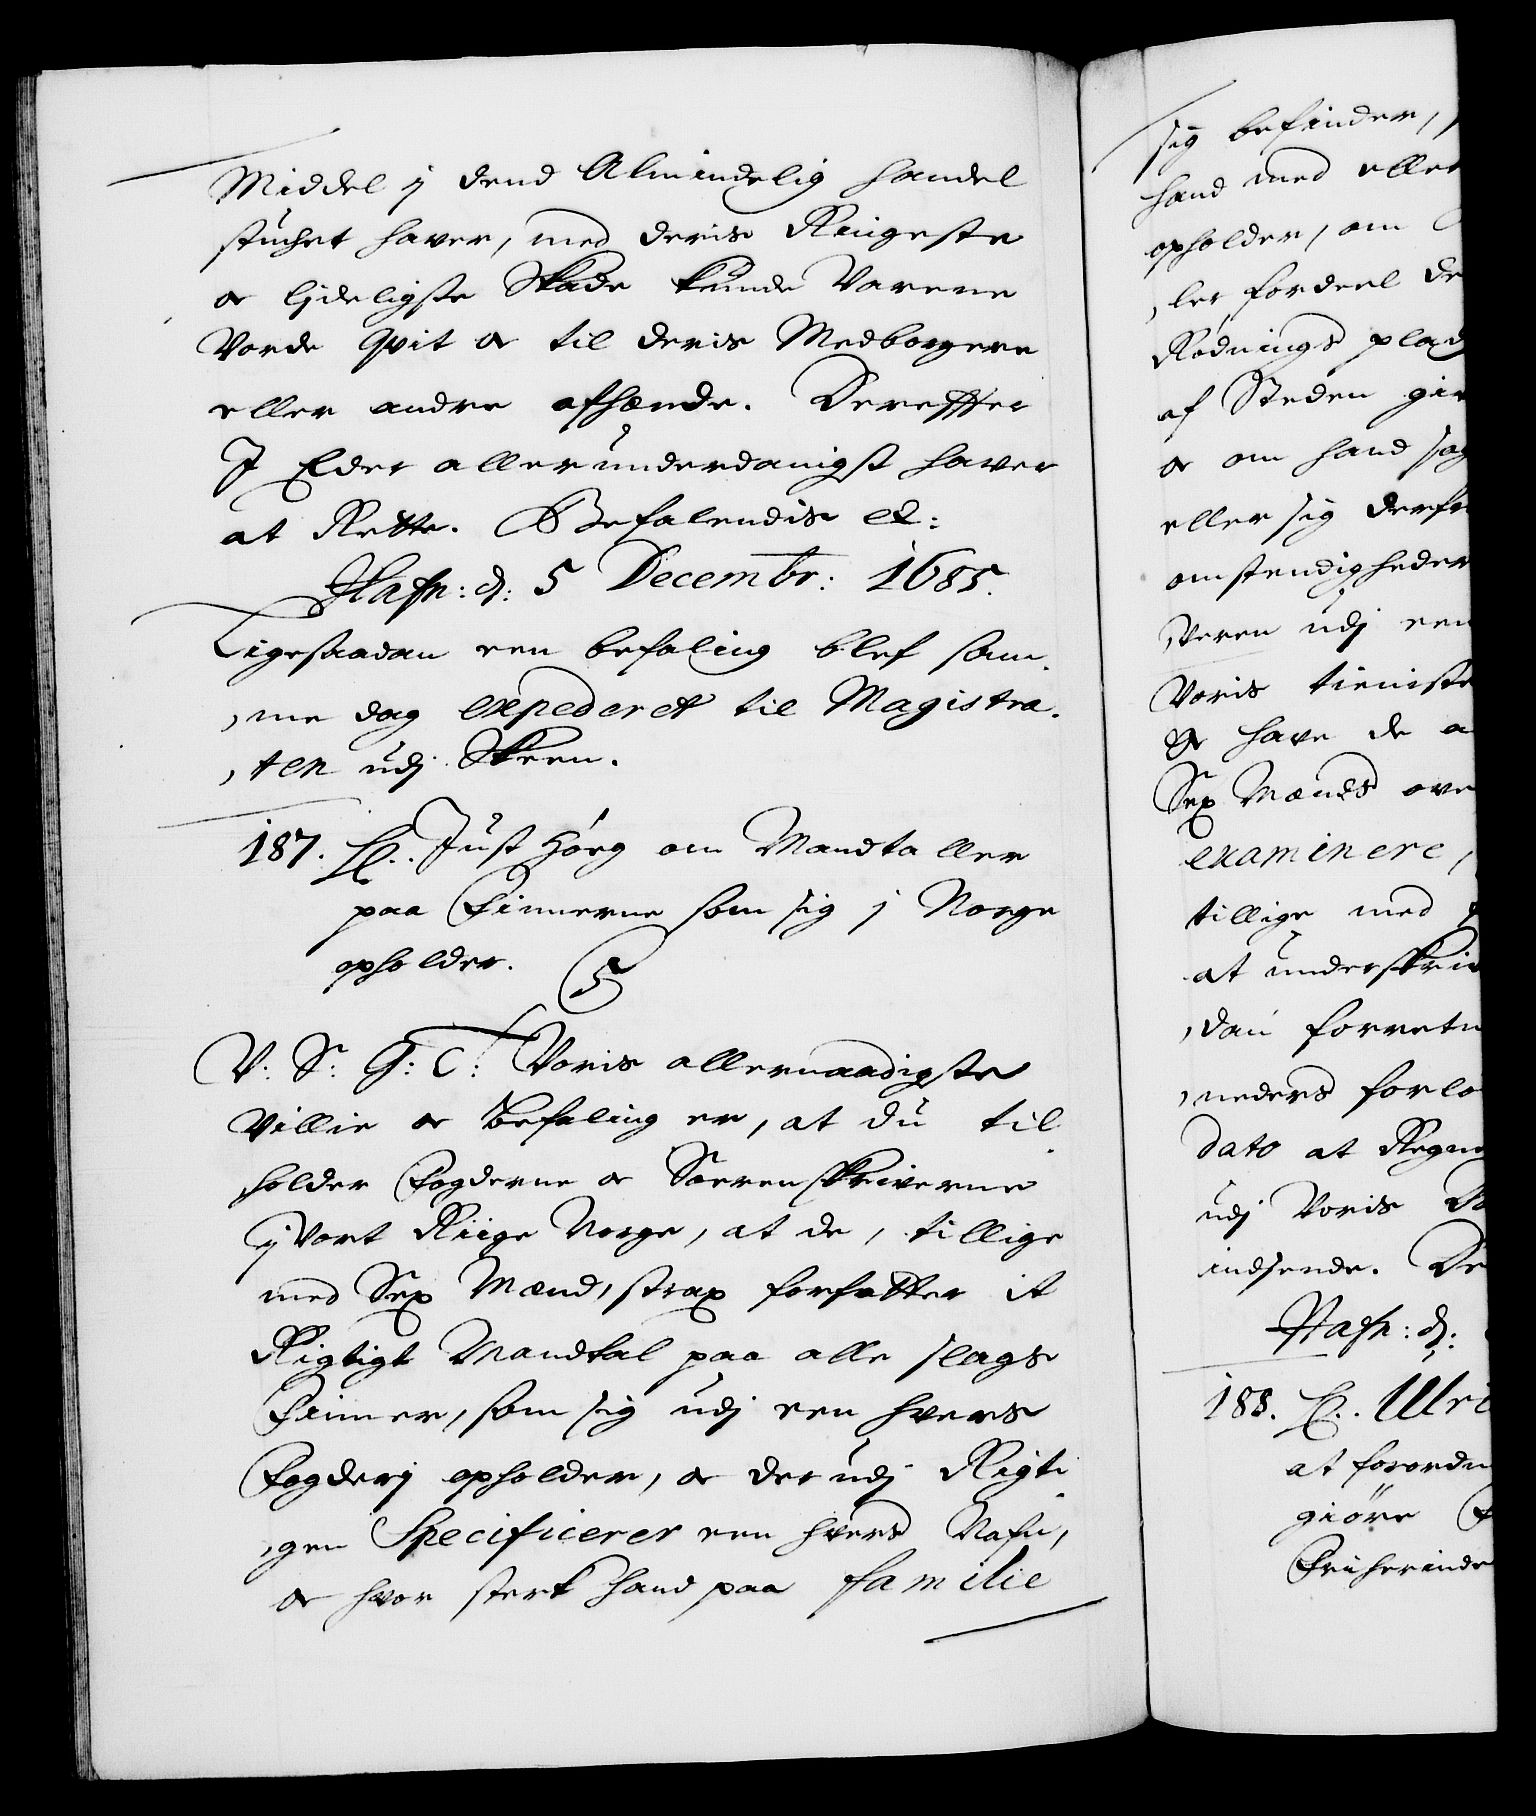 Middel i dend Almindelig handel
stuchet haver, med deris Ringeste
oc lideligste Skade kunde Varene
Vorde qvit oc til deris Medborgere
eller andre afhænde. Dereffter
I Eder allerunderdanigst haver
at Rette. Befalendis etc:
Hafn: d: 5 Decembr: 1685.
Ligesaadan een befaling blef sam¬
,me dag expederet til Magistra¬
,ten udj Skeen.
187. Just Høeg om Mandtaller
paa Finnerne som sig j Norge
opholder. 5
V: S: G: T: Voris allernaadigste
Villie oc Befaling er, at du til¬
holder Fogderne oc Sorenskriverne
j Vort Riige Norge, at de, tillige
med Sex Mænd, strax forfatter it
Rigtigt Mandtal paa alle slags
Finner, som sig udj een hvers
Fogderj opholder, oc derudj Rigti¬
,gen Specificerer een hvers Nafn,
oc hvor sterk hand paa familie
sig befinder,
hand med eller
opholder, om
,ler fordeel de
Rødnings plad
af Steden gi
oc om hand sag
eller sig derfr
omstendigheder
,veren udj een
Voris tieniste
Oc have de a
Sex Mænds ove
examinere,
tillige med
at underskri
,dan forretn
,neders forlø
dato at Regn
udj Voris
indsende. De
Hafn: d:
188. Ulri
at forordn
giøre
Friherinde